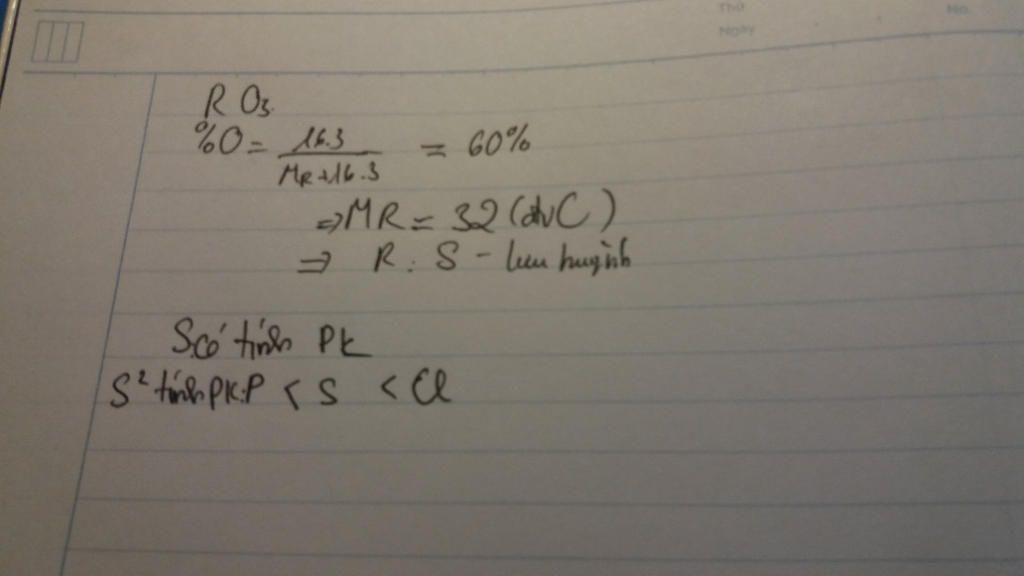 Thứ
No.
Ngày
R O3.
%O = 16.3 / MR+16.3 = 60%
⇒ MR = 32 (đvC)
⇒ R : S - lưu huỳnh
S có tính PK
S² tính PK: P < S < Cl